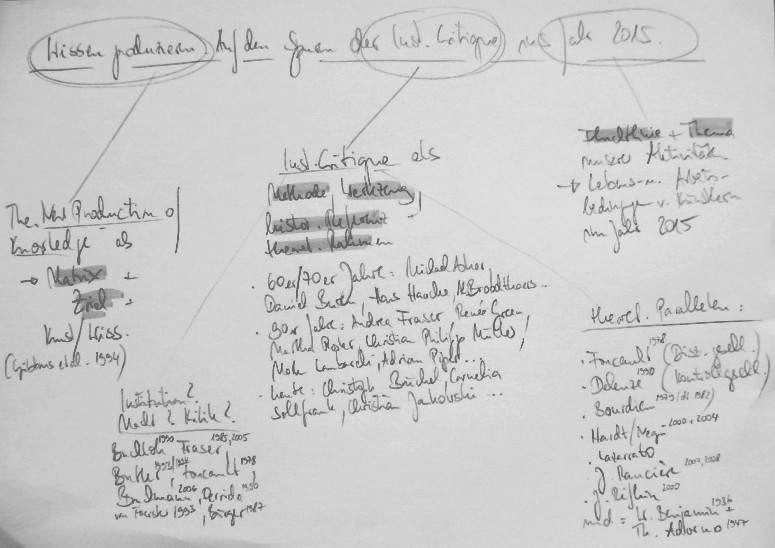 Wissen produzieren. Auf den Spuren der Inst. Critique ins Jahr 2015.
The New Production of
Knowledge als
→ Matrix +
Ziel +
Kunst/Wiss.
(Gibbons et al. 1994)
Inst. Critique als
Methode, Werkzeug
histor. Referenz +
theoret. Rahmen
· 60er/70er Jahre: Michael Asher,
Daniel Buren, Hans Haacke, M. Broodthaers...
· 90er Jahre: Andrea Fraser, Renée Green,
Martha Rosler, Christian Philipp Müller,
Mark Lombardi, Adrian Piper...
· heute: Christoph Büchel, Cornelia
Sollfrank, Christian Jankowski ...
Institution?
Macht? Kritik?
Buchloh 1990, Fraser 1985, 2005
Butler, Foucault 1978,
Buchmann 2006, Derrida
1993, Bürger 1987
+ Thema
unserer Aktivität
→ Lebens- u. Arbeits-
bedingungen v. Künstlern
im Jahr 2015
theoret. Parallelen:
· Foucault 1978 (Disz. gesell.)
· Deleuze 1990 (Kontrollgesell.)
· Bourdieu 1979 (dt. 1982)
· Hardt/Negri 2000 + 2004
· Lazzarato
· J. Rancière 2007, 2008
· J. Rifkin 2000
und: W. Benjamin 1936 +
Th. Adorno 1947